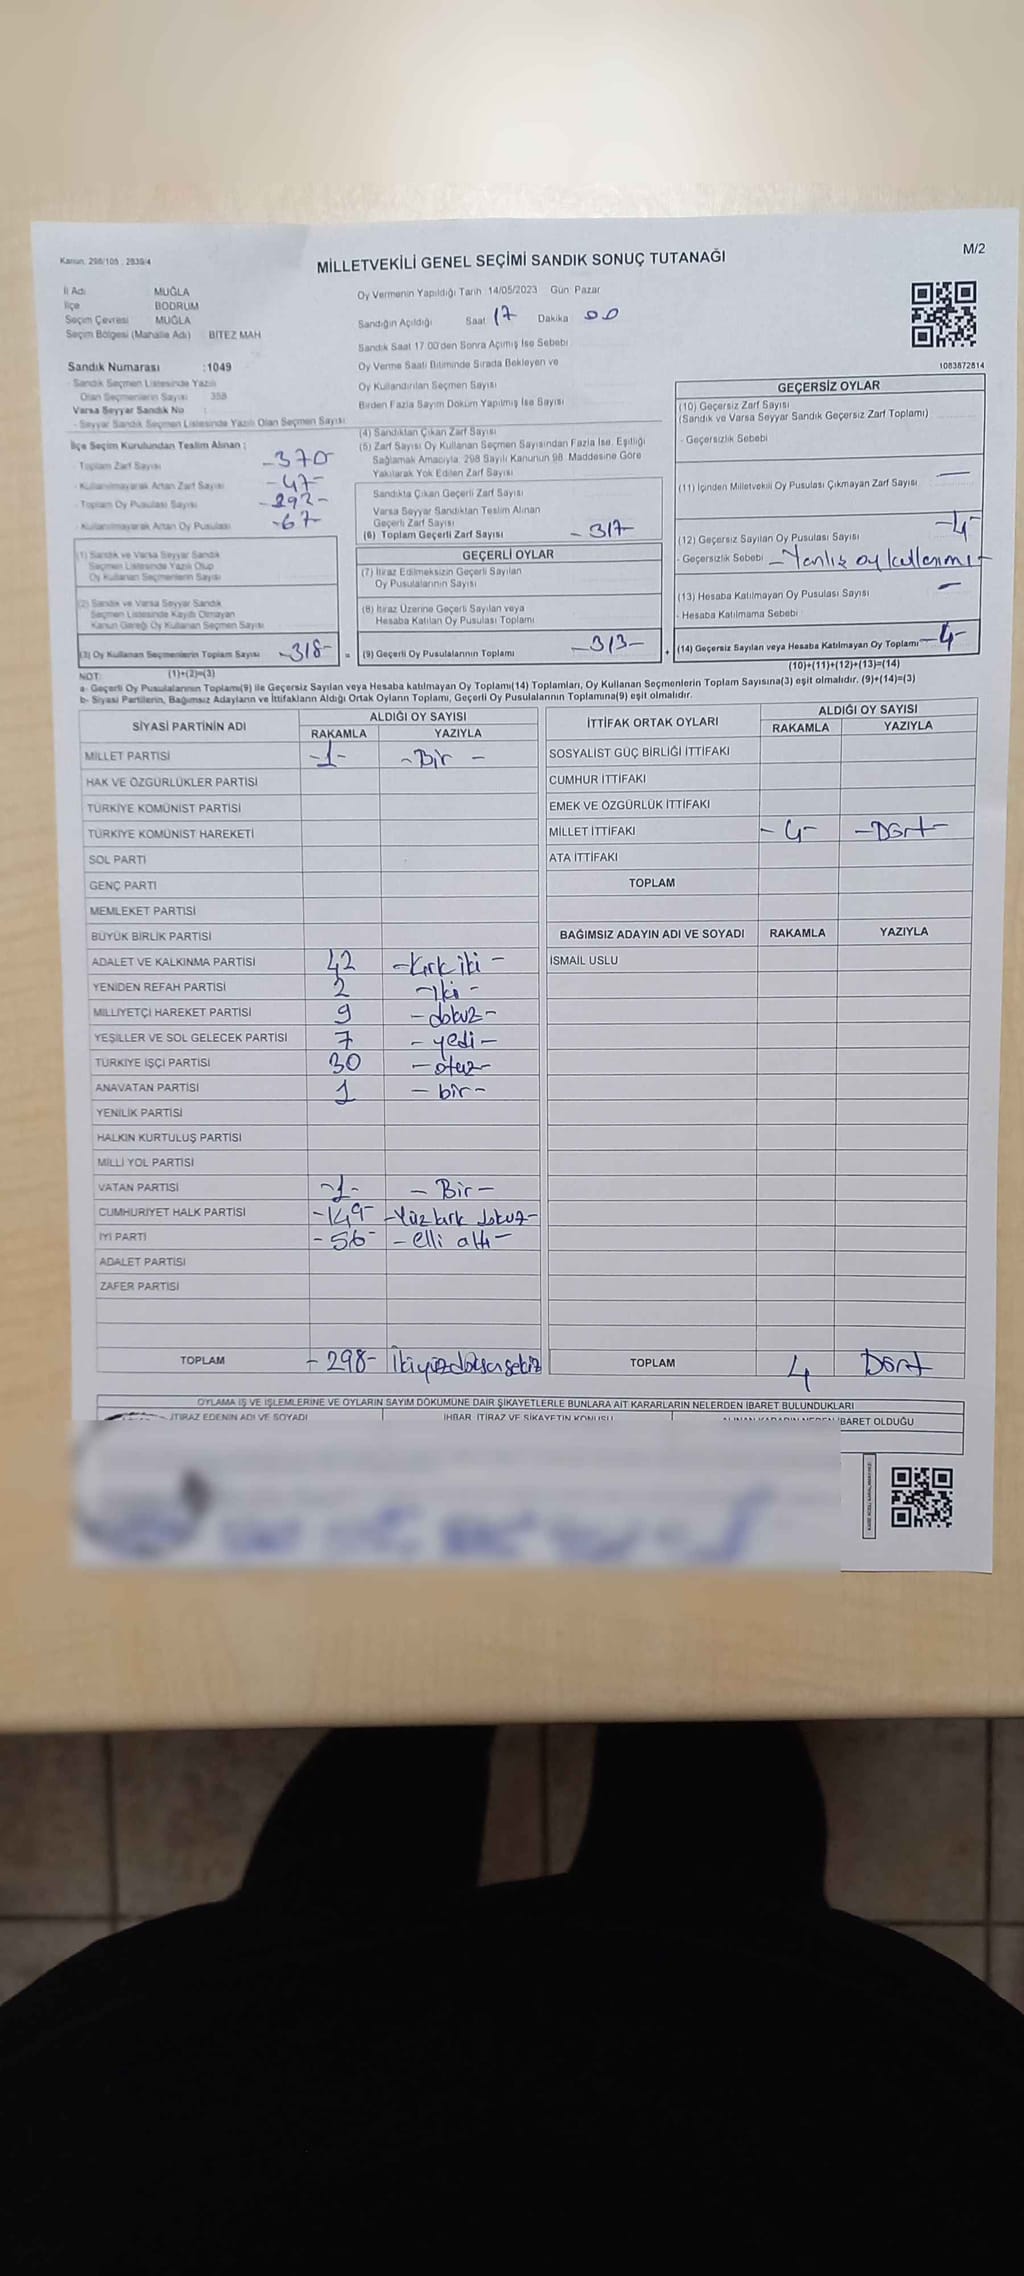 Kanun: 298/105 ; 2839/4
MİLLETVEKİLİ GENEL SEÇİMİ SANDIK SONUÇ TUTANAĞI
M/2
İl Adı MUĞLA
İlçe BODRUM
Seçim Çevresi MUĞLA
Seçim Bölgesi (Mahalle Adı) BİTEZ MAH
Sandık Numarası :1049
- Sandık Seçmen Listesinde Yazılı
Olan Seçmenlerin Sayısı 358
Varsa Seyyar Sandık No :
- Seyyar Sandık Seçmen Listesinde Yazılı Olan Seçmen Sayısı
Oy Vermenin Yapıldığı Tarih :14/05/2023 Gün: Pazar
Sandığın Açıldığı Saat: 17 Dakika 00
Sandık Saat 17:00'den Sonra Açımış İse Sebebi
Oy Verme Saati Bitiminde Sırada Bekleyen ve
Oy Kullandırılan Seçmen Sayısı
Birden Fazla Sayım Döküm Yapılmış İse Sayısı
1083872814
İlçe Seçim Kurulundan Teslim Alınan :
- Toplam Zarf Sayısı -370
- Kullanılmayarak Artan Zarf Sayısı -47-
- Toplam Oy Pusulası Sayısı
- Kullanılmayarak Artan Oy Pusulası -67-
(1) Sandık ve Varsa Seyyar Sandık
Seçmen Listesinde Yazılı Olup
Oy Kullanan Seçmenlerin Sayısı
(2) Sandık ve Varsa Seyyar Sandık
Seçmen Listesinde Kayıtlı Olmayan
Kanun Gereği Oy Kullanan Seçmen Sayısı
(3) Oy Kullanan Seçmenlerin Toplam Sayısı -318-
(4) Sandıktan Çıkan Zarf Sayısı
(5) Zarf Sayısı Oy Kullanan Seçmen Sayısından Fazla İse, Eşitliği
Sağlamak Amacıyla, 298 Sayılı Kanunun 98. Maddesine Göre
Yakılarak Yok Edilen Zarf Sayısı
Sandıkta Çıkan Geçerli Zarf Sayısı
Varsa Seyyar Sandıktan Teslim Alınan
Geçerli Zarf Sayısı
(6) Toplam Geçerli Zarf Sayısı -317-
GEÇERLİ OYLAR
(7) İtiraz Edilmeksizin Geçerli Sayılan
Oy Pusulalarının Sayısı
(8) İtiraz Üzerine Geçerli Sayılan veya
Hesaba Katılan Oy Pusulası Toplamı
= (9) Geçerli Oy Pusulalarının Toplamı -313-
GEÇERSİZ OYLAR
(10) Geçersiz Zarf Sayısı
(Sandık ve Varsa Seyyar Sandık Geçersiz Zarf Toplamı)
- Geçersizlik Sebebi
(11) İçinden Milletvekili Oy Pusulası Çıkmayan Zarf Sayısı —
(12) Geçersiz Sayılan Oy Pusulası Sayısı -4-
- Geçersizlik Sebebi - Yanlız oy kullanımı -
(13) Hesaba Katılmayan Oy Pusulası Sayısı —
- Hesaba Katılmama Sebebi
+ (14) Geçersiz Sayılan veya Hesaba Katılmayan Oy Toplamı -4-
NOT: (1)+(2)=(3)
(10)+(11)+(12)+(13)=(14)
a- Geçerli Oy Pusulalarının Toplamı(9) ile Geçersiz Sayılan veya Hesaba katılmayan Oy Toplamı(14) Toplamları, Oy Kullanan Seçmenlerin Toplam Sayısına(3) eşit olmalıdır. (9)+(14)=(3)
b- Siyasi Partilerin, Bağımsız Adayların ve İttifakların Aldığı Ortak Oyların Toplamı, Geçerli Oy Pusulalarının Toplamına(9) eşit olmalıdır.
SİYASİ PARTİNİN ADI ALDIĞI OY SAYISI
RAKAMLA YAZIYLA
MİLLET PARTİSİ -1- - Bir -
HAK VE ÖZGÜRLÜKLER PARTİSİ
TÜRKİYE KOMÜNİST PARTİSİ
TÜRKİYE KOMÜNİST HAREKETİ
SOL PARTİ
GENÇ PARTİ
MEMLEKET PARTİSİ
BÜYÜK BİRLİK PARTİSİ
ADALET VE KALKINMA PARTİSİ 42 -Kırk iki -
YENİDEN REFAH PARTİSİ 2 - İki -
MİLLİYETÇİ HAREKET PARTİSİ 9 - dokuz -
YEŞİLLER VE SOL GELECEK PARTİSİ 7 - yedi -
TÜRKİYE İŞÇİ PARTİSİ 30 - otuz-
ANAVATAN PARTİSİ 1 - bir -
YENİLİK PARTİSİ
HALKIN KURTULUŞ PARTİSİ
MİLLİ YOL PARTİSİ
VATAN PARTİSİ -1- - Bir -
CUMHURİYET HALK PARTİSİ -149- -Yüz kırk dokuz-
İYİ PARTİ -56- - elli altı -
ADALET PARTİSİ
ZAFER PARTİSİ
TOPLAM - 298- İkiyüzdoksansekiz
İTTİFAK ORTAK OYLARI ALDIĞI OY SAYISI
RAKAMLA YAZIYLA
SOSYALİST GÜÇ BİRLİĞİ İTTİFAKI
CUMHUR İTTİFAKI
EMEK VE ÖZGÜRLÜK İTTİFAKI
MİLLET İTTİFAKI - 4 - - Dört -
ATA İTTİFAKI
TOPLAM
BAĞIMSIZ ADAYIN ADI VE SOYADI RAKAMLA YAZIYLA
İSMAİL USLU
TOPLAM 4 Dört
OYLAMA İŞ VE İŞLEMLERİNE VE OYLARIN SAYIM DÖKÜMÜNE DAİR ŞİKAYETLERLE BUNLARA AİT KARARLARIN NELERDEN İBARET BULUNDUKLARI
İTİRAZ EDENİN ADI VE SOYADI İHBAR, İTİRAZ VE ŞİKAYETİN KONUSU İBARET OLDUĞU